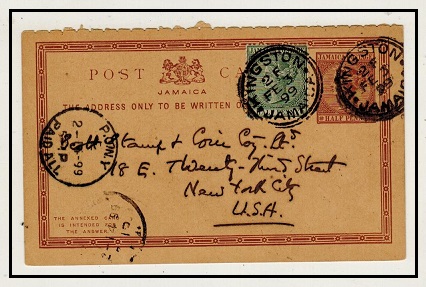 POST CARD
JAMAICA
THE ADDRESS ONLY TO BE WRITTEN
JAMAICA
HALF PENNY
KINGSTON
JAMAICA
99
KINGSTON
JAMAICA
Scott Stamp & Coin Co. Ld
18 E. Twenty-third Street
New York City
U.S.A.
P.O.N.Y.
2-99
PAID ALL
THE ANNEXED CARD
IS INTENDED FOR
THE ANSWER.